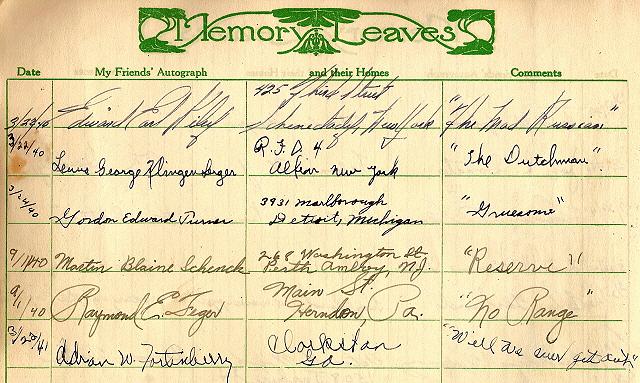 Memory Leaves
Date My Friends' Autograph and their Homes Comments
425 Third Street
3/22/40 Edward Earl Schenectady, New York "The Mad Russian"
3/22/40 R.F.D. 4
Lewis George Albion New York "The Dutchman"
3/24/40 3931 Marlborough
Gordon Edward Turner Detroit, Michigan "Gruesome"
9/1/40 268 Washington St.
Martin Blaine Schenck Perth Amboy, N.J. "Reserve"
9/1/40 Main St.
Raymond E. Herndon, Pa. "No Range"
Clarkston
Adrian W. Fortenberry Ga. "Will we ever get out"